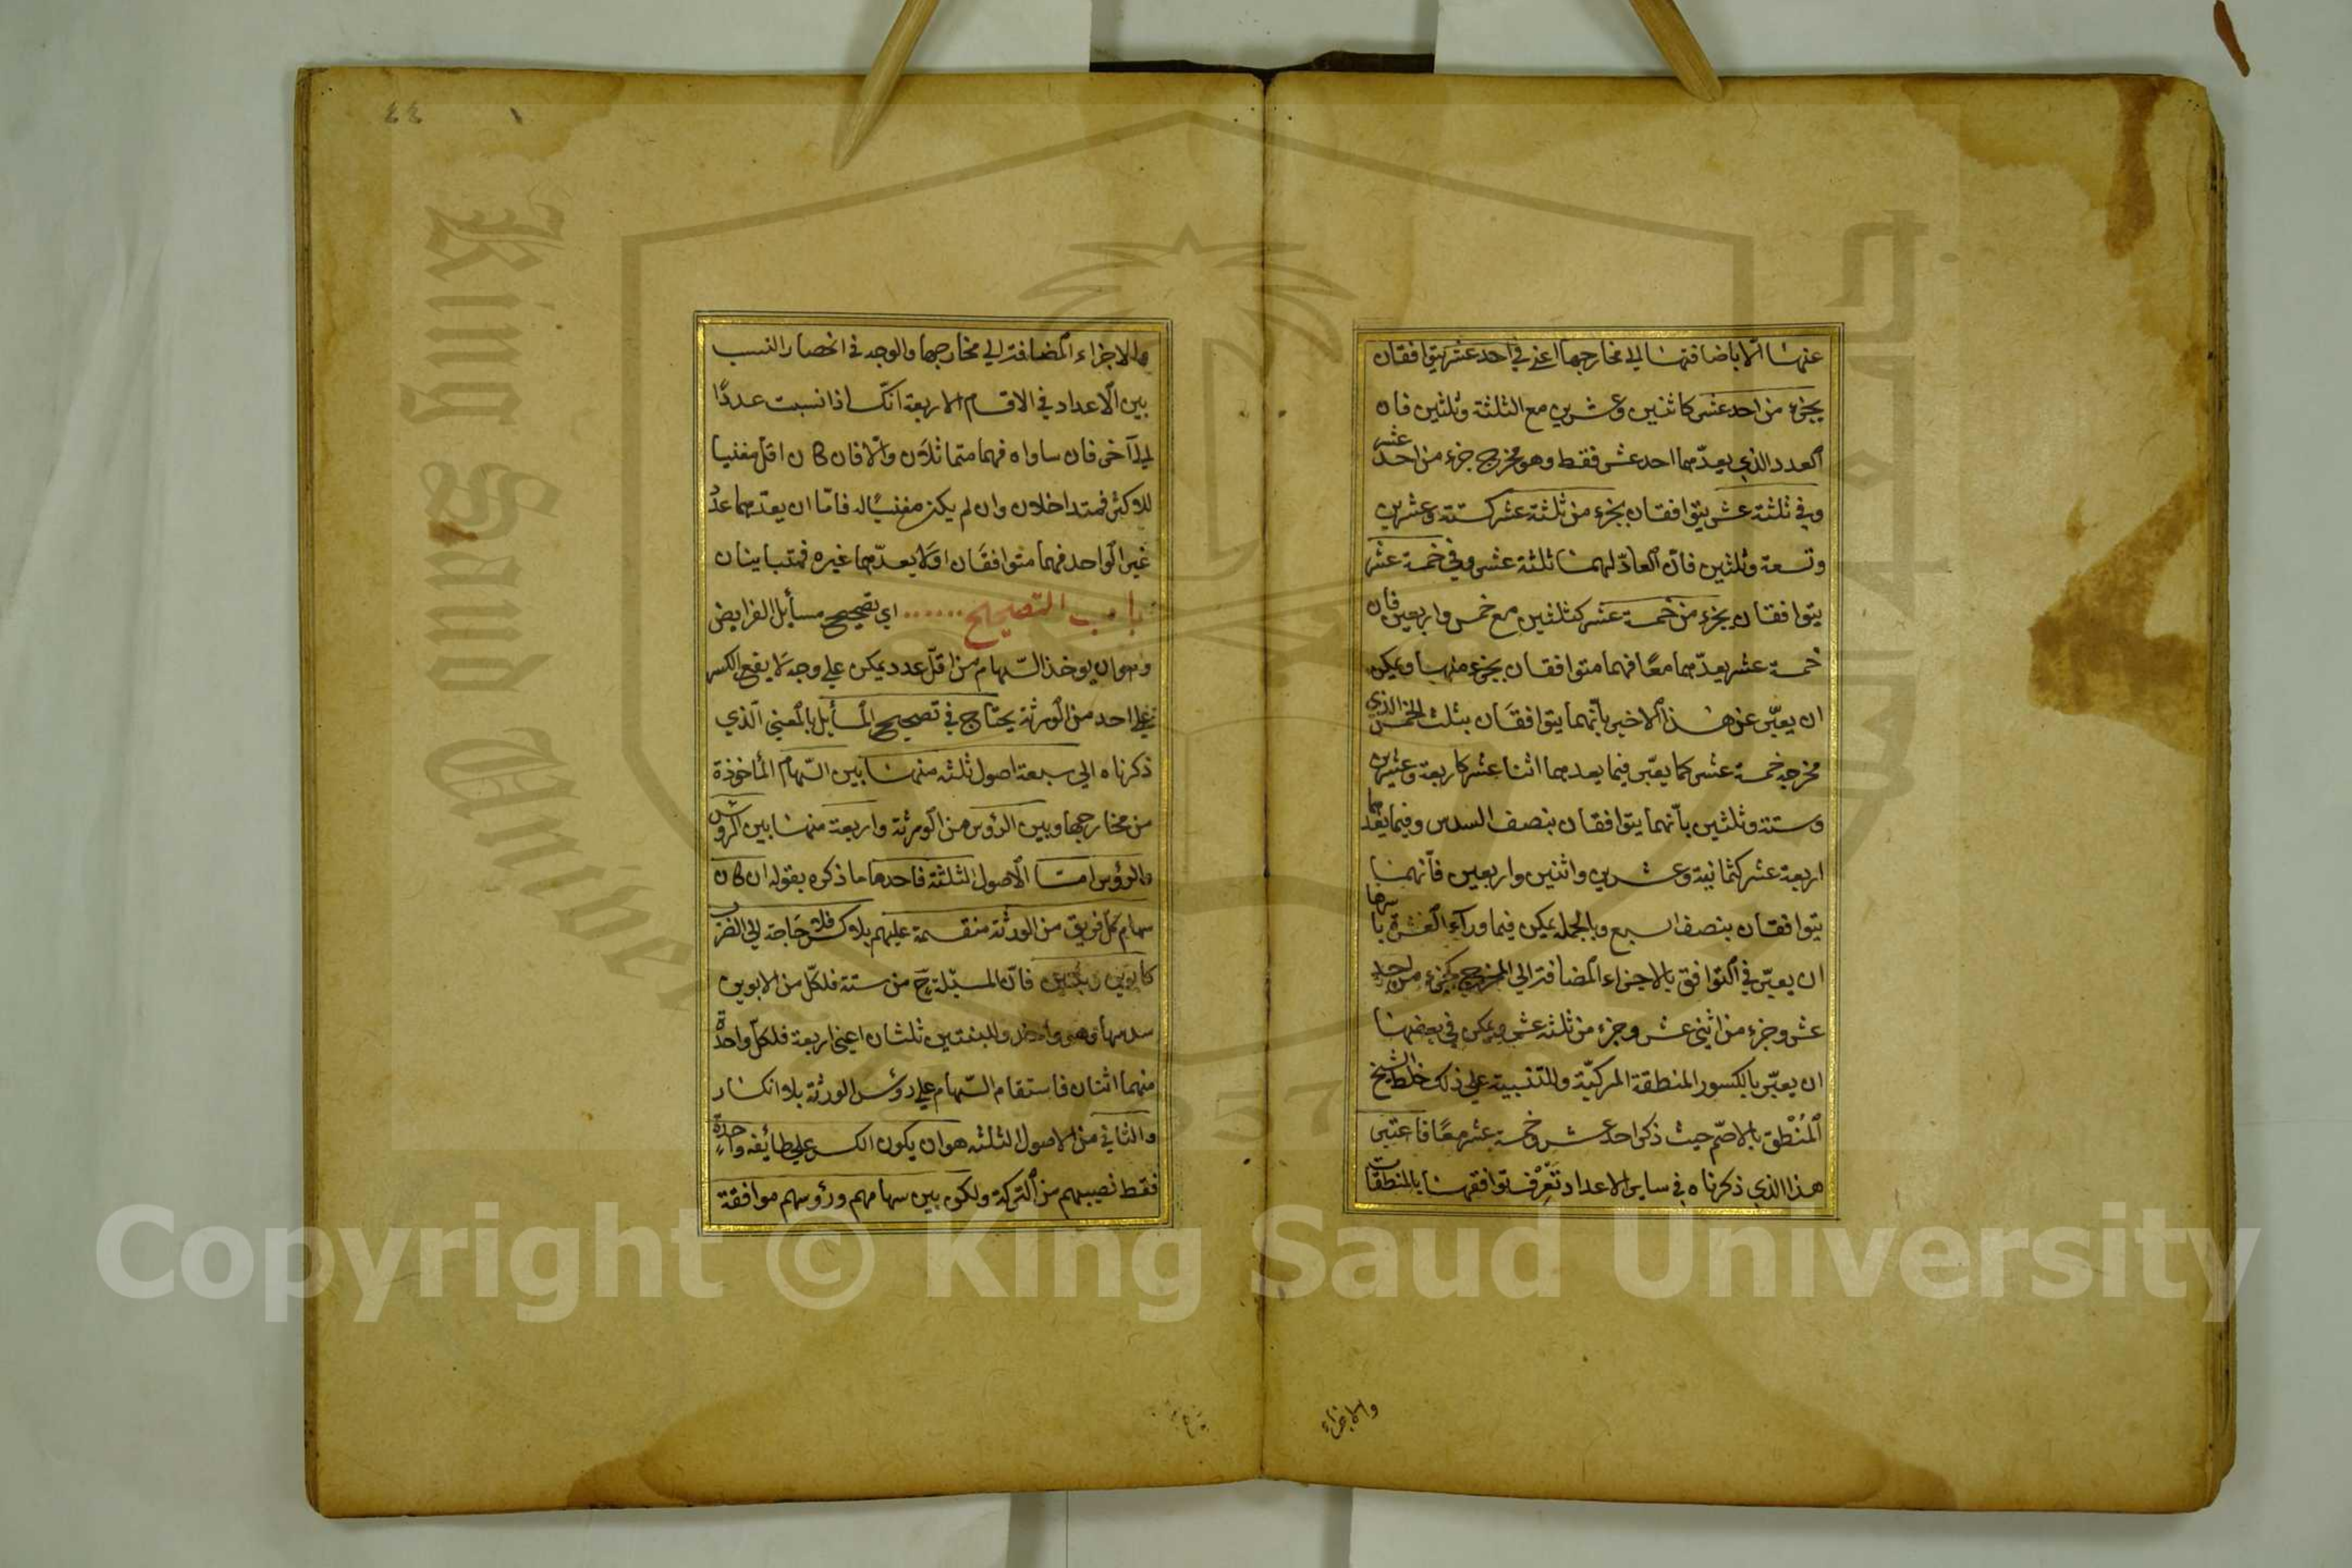 عنهما الا باضافتهما الى مخارجهما اعني في احد عشر يتوافقان
بجزء من احد عشر كاثنين وعشرين مع الثلثة وثلثين فان
العدد الذي يعدّهما احد عشر فقط وهو مخرج جزء من احد عشر
وفي ثلثة عشر يتوافقان بجزء من ثلثة عشر كستة وعشرين
وتسعة وثلثين فانّ العادّ لهما ثلثة عشر وفي خمسة عشر
يتوافقان بجزء من خمسة عشر كثلثين مع خمس واربعين فان
خمسة عشر يعدّهما معًا فهما متوافقان بجزء منها ويمكن
ان يعبّر عن هذا الاخير بأنهما يتوافقان بثلث الخمس الذي
مخرجه خمسة عشر كما يعبّر فيما يعدهما اثنا عشر كاربعة وعشرين
وستة وثلثين بأنهما يتوافقان بنصف السدس وفيما يعدهما
اربعة عشر كثمانية وعشرين واثنين واربعين فأنهما
يتوافقان بنصف السبع وبالجملة يمكن فيما ورآء العشرة باسرها
ان يعبّر في التوافق بالاجزاء المضافة الى المخرج كجزء من احد
عشر وجزء من اثنى عشر وجزء من ثلثة عشر ويمكن في بعضها
ان يعبّر بالكسور المنطقة المركبّة وللتنبيه على ذلك خلط الشيخ
المُنْطق بالاصّم حيث ذكر احد عشر وخمسة عشر معًا فاعتبر
هذا الذي ذكرناه في ساير الاعداد تَعْرِف توافقها بالمنطقات
والاجزاء
٤٤
والاجزاء المضافة الى مخارجها والوجه في انحصار النسب
بين الاعداد في الاقسام الاربعة انّك اذا نسبت عددًا
الى آخر فان ساواه فهما متماثلان والّا فان كان اقلّ مفنيا
للاكثر فمتداخلان وان لم يكن مفنيًا له فامّا ان يعدّهما عدد
غير الواحد فهما متوافقان او لا يعدّهما غيره فمتباينان
باب التصحيح ...... اي تصحيح مسأيل الفرايض
وهو ان يوخذ السّهام من اقلّ عدد يمكن على وجه لا يقع الكسر
على احد من الورثة يحتاج في تصحيح المسأيل بالمعنى الذي
ذكرناه الى سبعة اصول ثلثة منها بين السّهام المأخوذة
من مخارجها وبين الرؤس من الورثة واربعة منها بين الرؤس
والرؤس امّا الاصول الثلثة فاحدها ما ذكره بقوله ان كان
سهام كل فريق من الورثة منقسمة عليهم بلا كسر فلا حاجة الى الضرب
كابوين وبنتين فانّ المسئلة ح من ستة فلكلّ من الابوين
سدسها وهو واحد وللبنتين ثلثان اعني اربعة فلكلّ واحدة
منهما اثنان فاستقام السّهام على رؤس الورثة بلا انكسار
والثاني من الاصول الثلثة هو ان يكون الكسر على طائفة واحدةٍ
فقط نصيبهم من التركة ولكن بين سهامهم ورؤوسهم موافقة
Copyright © King Saud University
King Saud University
1957